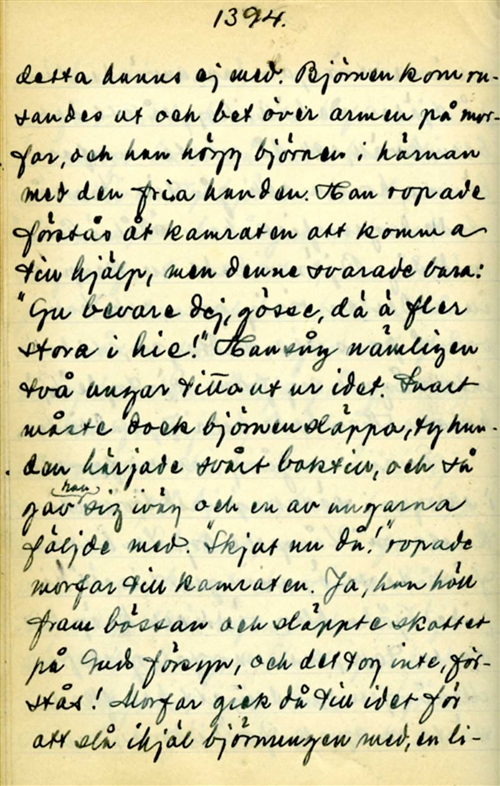 1394.
detta hunns ej med. Björnen kom ru-
sandes ut och bet över armen på mor-
far, och han högg björnen i härnan
med den fria handen. Han ropade
förstås åt kamraten att komma
till hjälp, men denne svarade bara:
"Gu bevare dej, gösse, dä ä fler
stora i hie!" Han såg nämligen
två ungar titta ut ur idet. Snart
måste dock björnen släppa, ty hun-
den härjade svårt baktill, och så
gav han sig iväg och en av ungarna
följde med. "Skjut nu då!" ropade
morfar till kamraten. Ja, han höll
fram bössan och släppte skottet
på Guds försyn, och det tog inte, för-
stås! Morfar gick då till idet för
att slå ihjäl björnungen med, en li-